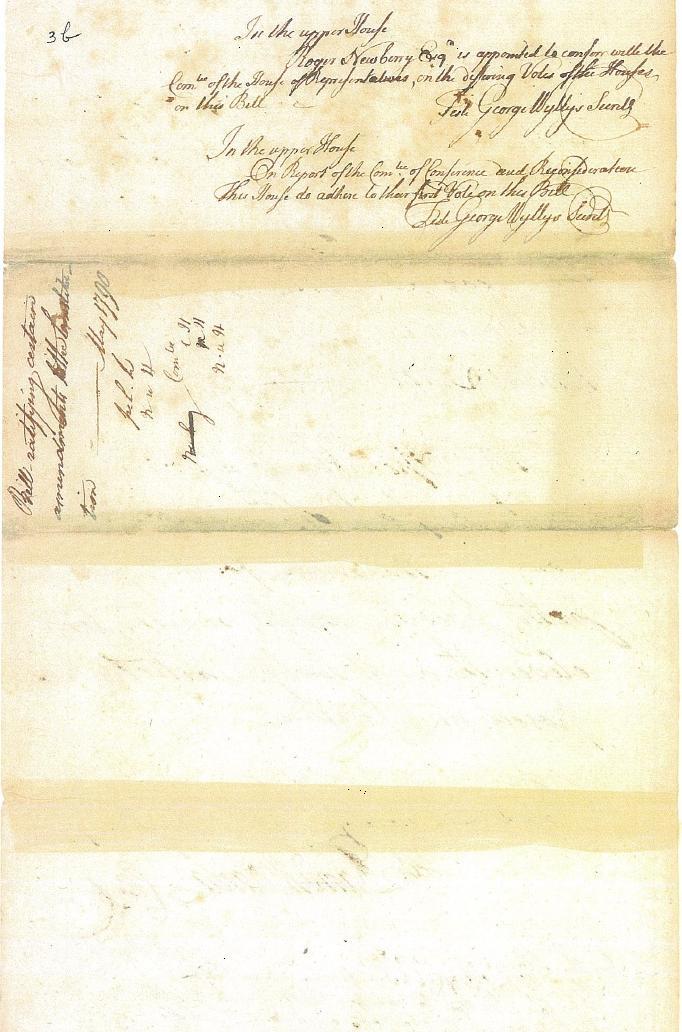 3b
In the upper House
Roger Newberry Esqr is appointed to conferr with the
Comtee of the House of Representatives, on the differing Votes of the Houses
on this Bill
Teste George Wyllys Secretr
In the upper House
On Report of the Comtee of Conference and Reconsideration
This House do adhere to their first Vote on this Bill
Teste George Wyllys Secret
Bill ratifying certain
amendments to the Constitu
tion
May 1790